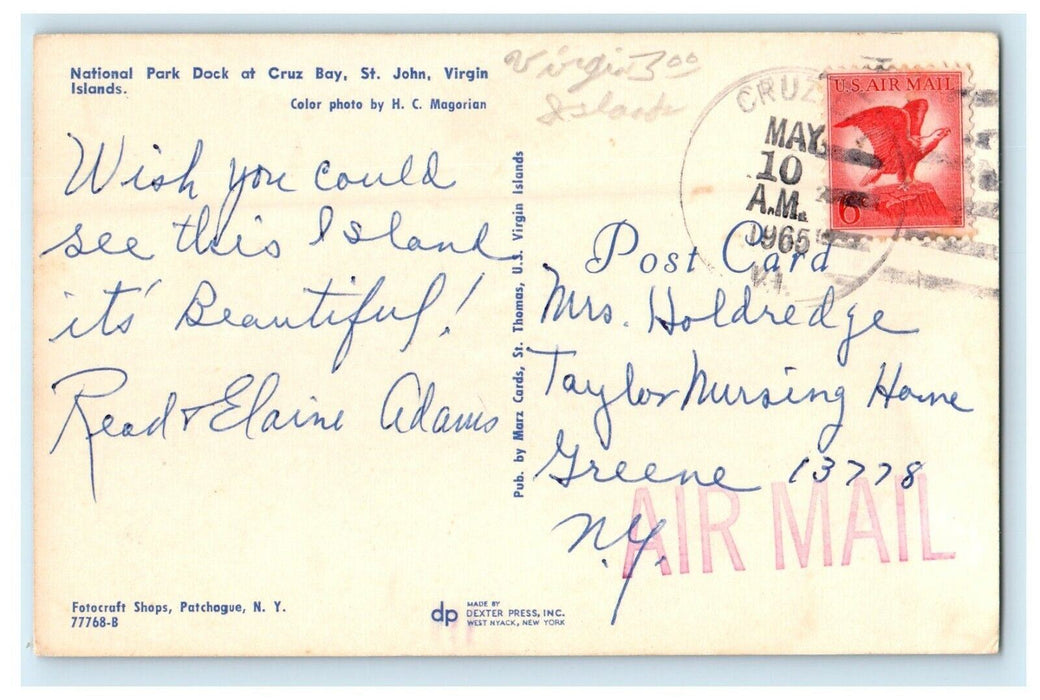 National Park Dock at Cruz Bay, St. John, Virgin
Islands.
Color photo by H. C. Magorian
Virgin 3 00
Islands
Wish you could
see this Island
it's Beautiful!
Read & Elaine Adams
Pub. by Marz Cards, St. Thomas, U.S. Virgin Islands
CRUZ
MAY
10
A.M.
1965
V.I.
U.S. AIR MAIL
6
Post Card
Mrs. Holdredge
Taylor Nursing Home
Greene 13778
N.Y.
AIR MAIL
Fotocraft Shops, Patchogue, N. Y.
77768-B
dp
MADE BY
DEXTER PRESS, INC.
WEST NYACK, NEW YORK